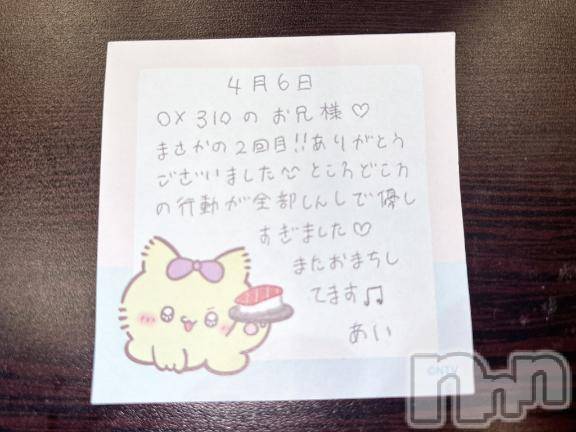 4月6日
OX 310のお兄様♡
まさかの2回目!!ありがとう
ございました ところどころ
の行動が全部しんしで優し
すぎました♡
またおまちし
てます♫
あい
©NTV
nnn